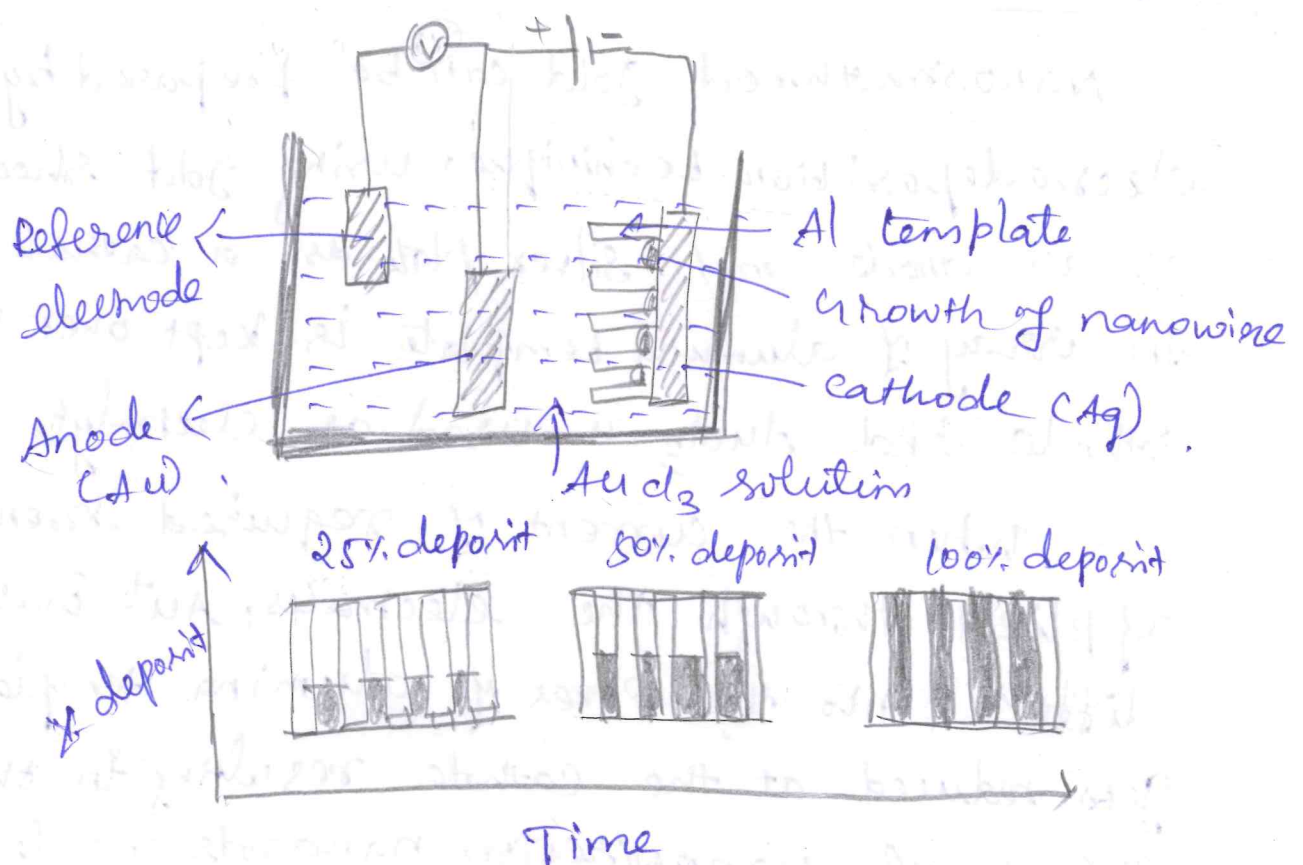 V
+ -
Reference
electrode
Anode
(Au).
Al template
Growth of nanowire
Cathode (Ag).
AuCl3 solution
25% deposit
50% deposit
100% deposit
% deposit
Time